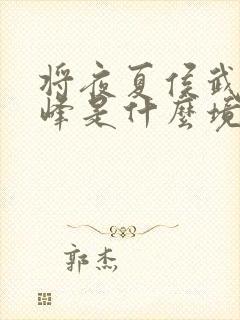 将夜夏侯武
峰是什麼境
郭杰